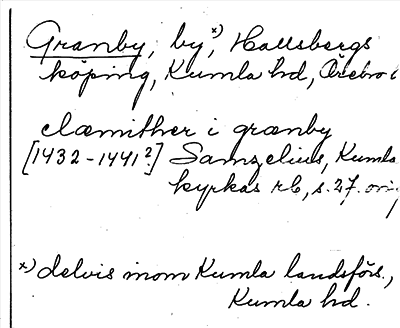 Granby, by,ˣ⁾ Hallsbergs
köping, Kumla hd, Örebro
clæmither i grænby
[1432-1441?] Samzelius, Kumla
kyrkas rb, s. 27. ori
x) delvis inom Kumla landsförs.,
Kumla hd.